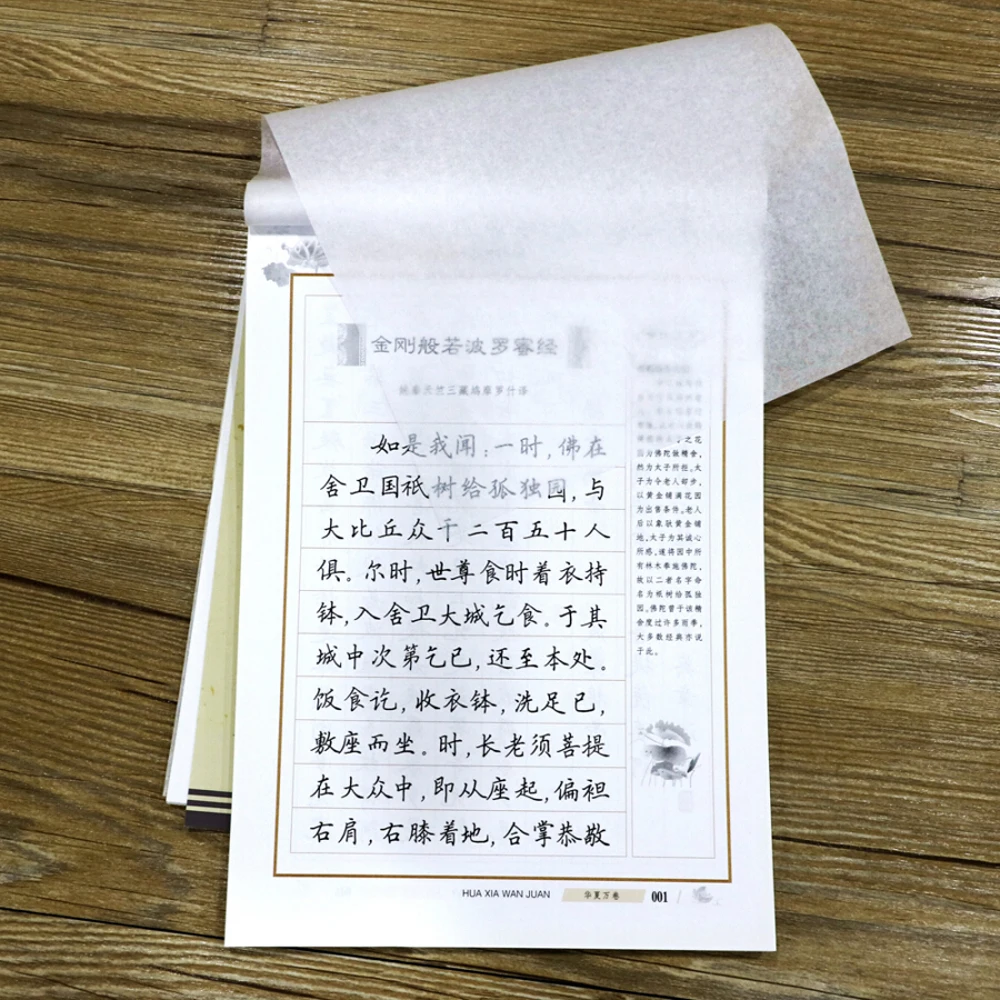 金刚般若波罗蜜经
姚秦天竺三藏鸠摩罗什译
如是我闻：一时，佛在
舍卫国祇树给孤独园，与
大比丘众千二百五十人
俱。尔时，世尊食时着衣持
钵，入舍卫大城乞食。于其
城中次第乞已，还至本处。
饭食讫，收衣钵，洗足已，
敷座而坐。时，长老须菩提
在大众中，即从座起，偏袒
右肩，右膝着地，合掌恭敬
之花
为佛陀做精舍，
然为太子所拒。太
子为令老人却步，
以黄金铺满花园
为出售条件。老人
后以象驮黄金铺
地，太子为其诚心
所感，遂将园中所
有林木奉施佛陀，
故以二者名字命
名为祇树给孤独
园。佛陀曾于该精
舍度过许多雨季，
大多数经典亦说
于此。
HUA XIA WAN JUAN 华夏万卷 001